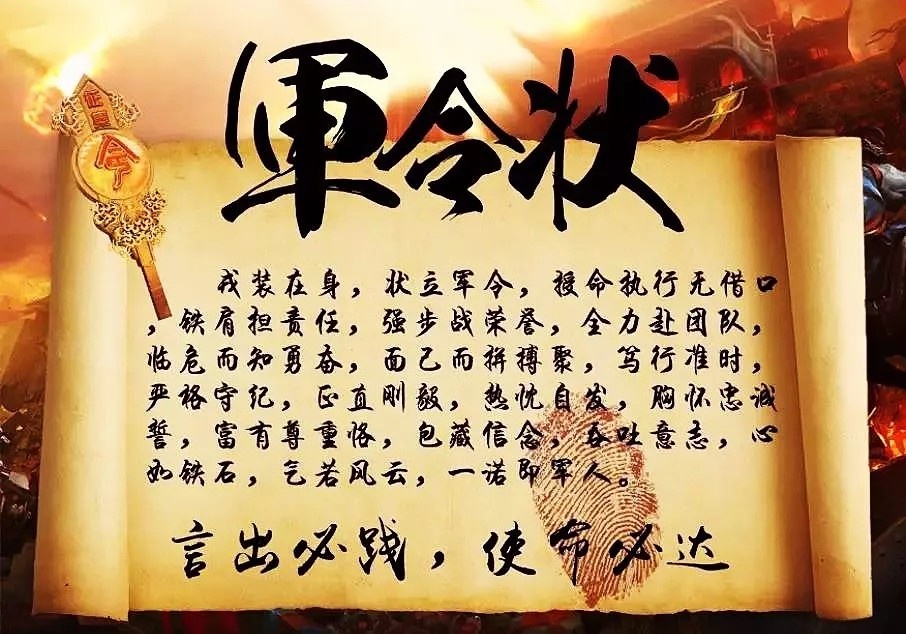 軍令状
令
戎装在身，状立军令，授命执行无借口
，铁肩担责任，强步战荣誉，全力赴团队，
临危而知勇奋，面己而拼搏聚，笃行准时，
严格守纪，正直刚毅，热忱自发，胸怀忠诚
誓，富有尊重恪，包藏信念，吞吐意志，心
如铁石，气若风云，一诺即军人。
言出必践，使命必达